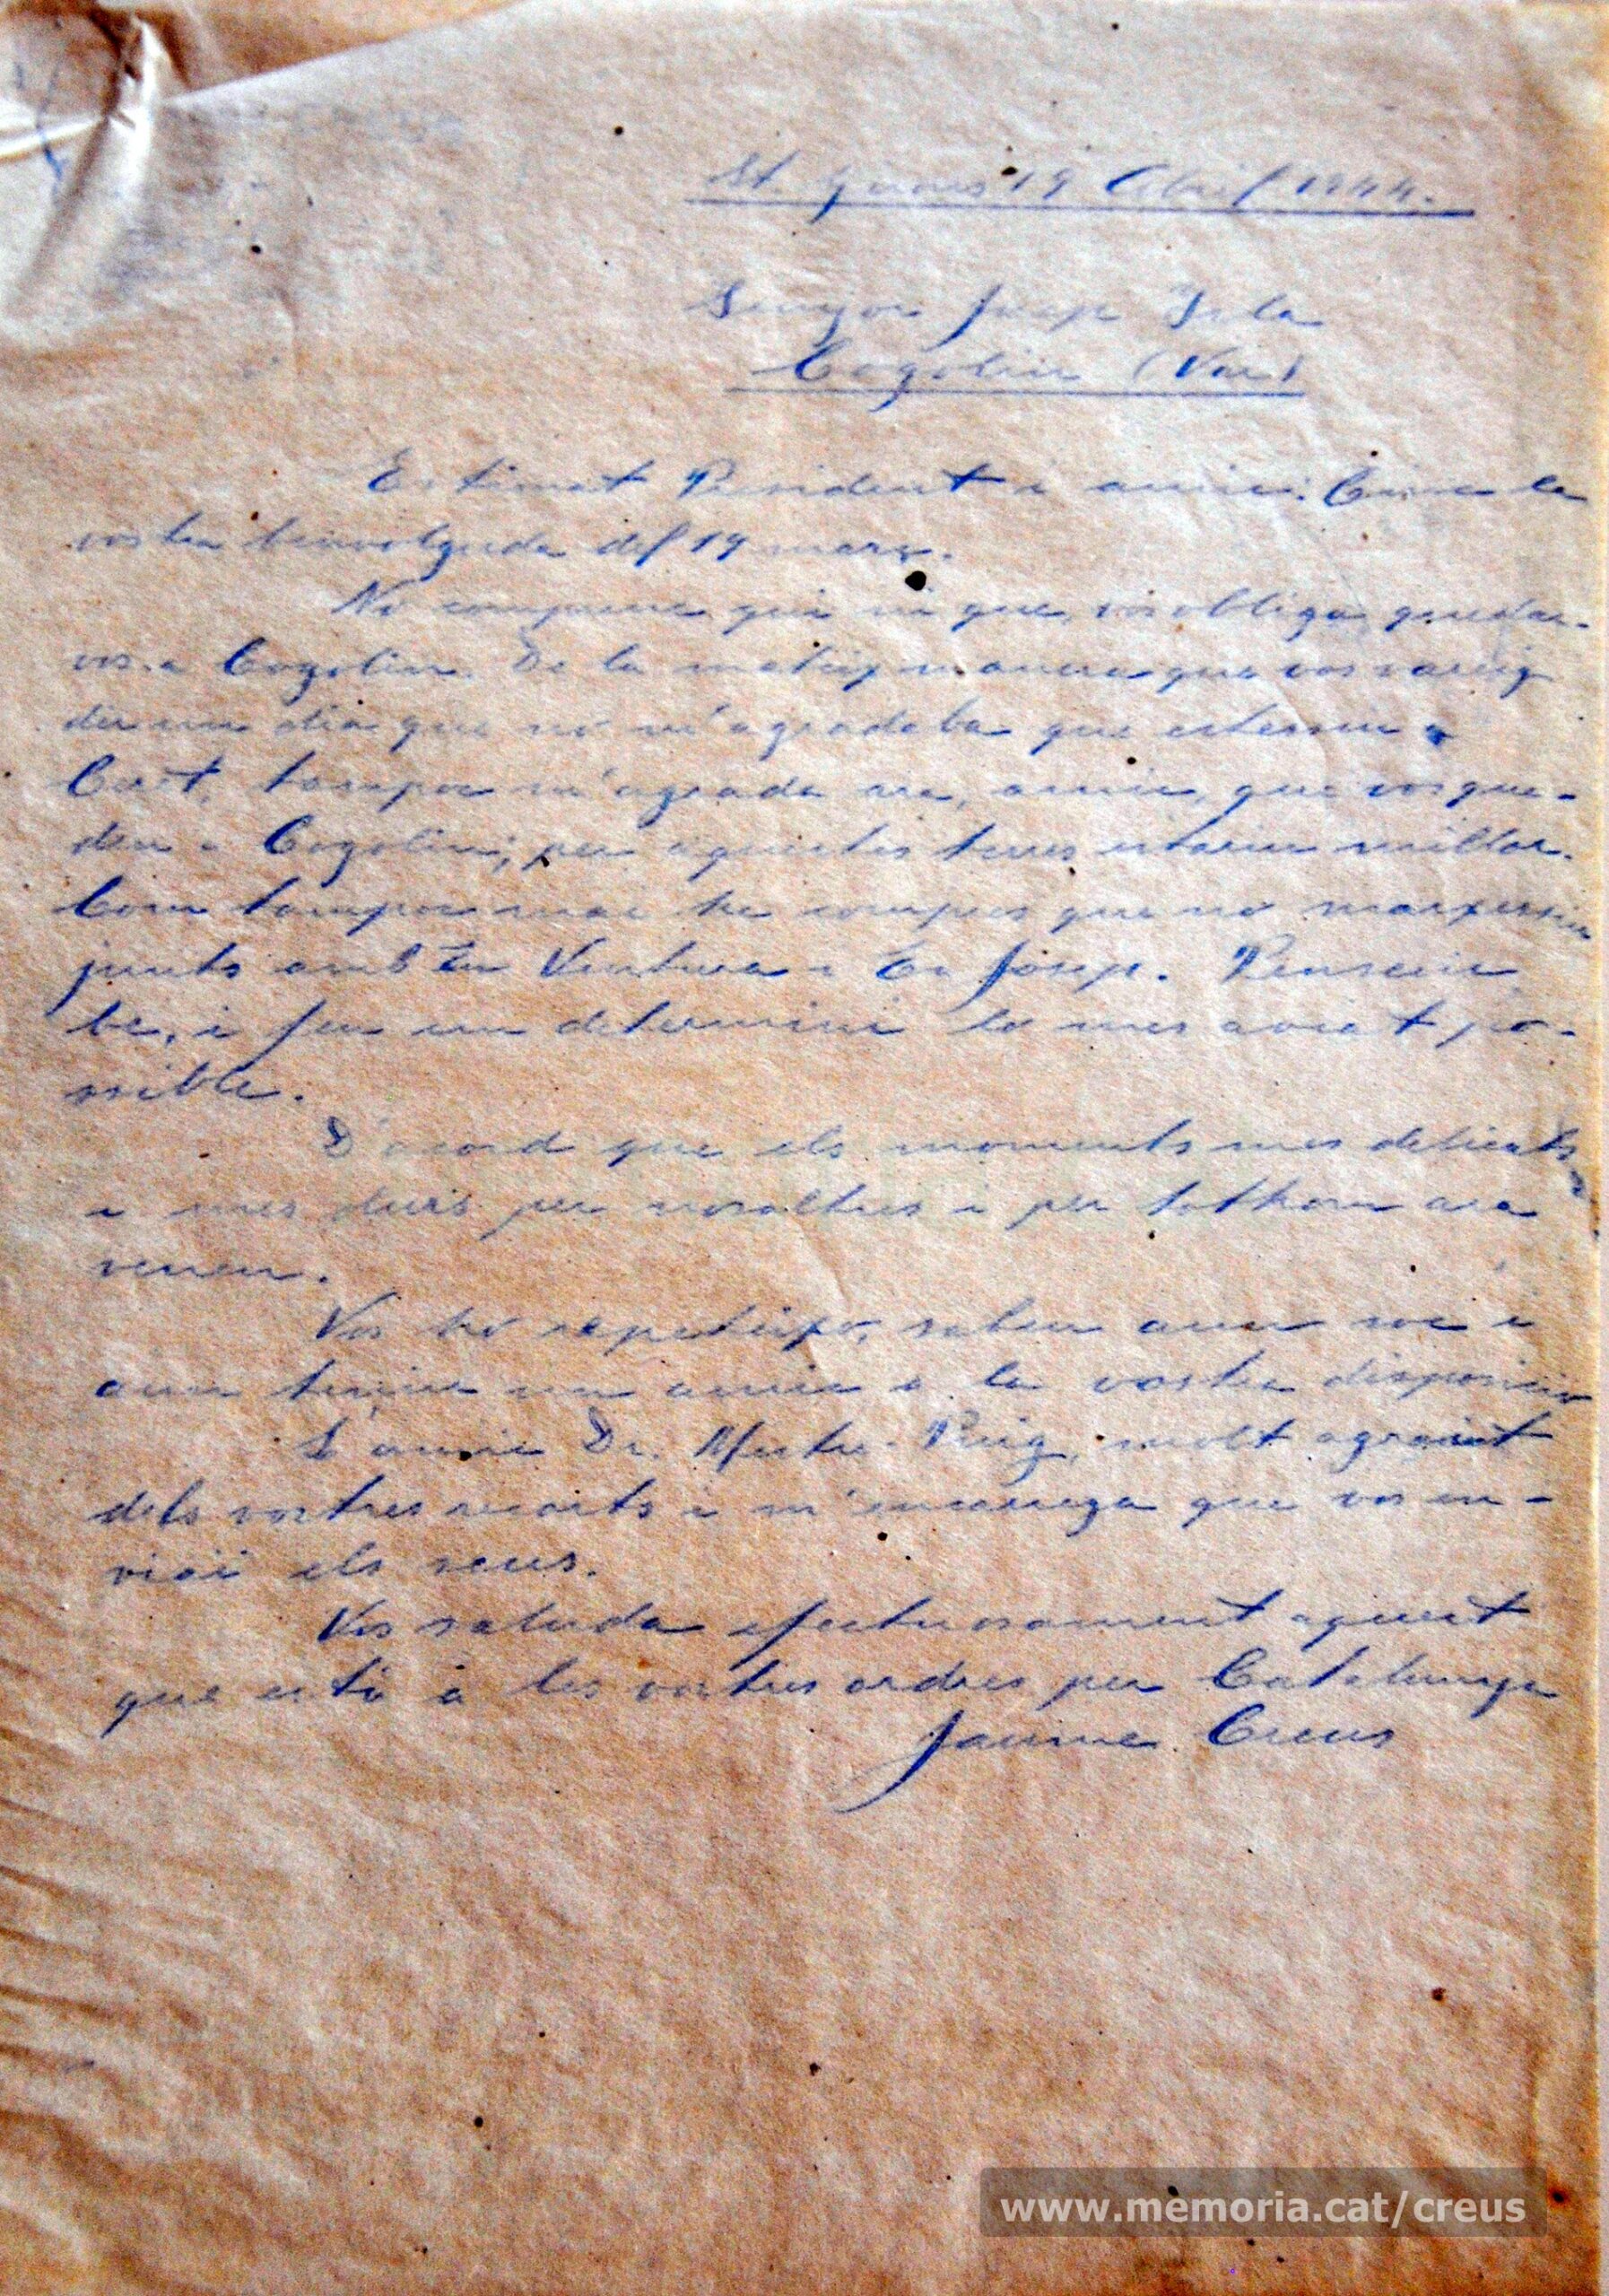 St. 19 Abril 1944.
Senyor Josep Irla
Cogolin (Var)
Estimat President i amic: la
vostra benvolguda del 19 març.
No comprenc qui ni que vos obliga quedar-
vos a Cogolin. De la mateix manera que vos vareig
dir un dia que no m'agradaba que estessiu a
Ceret, tampoc m'agrada ara, amic, que vos que-
deu a Cogolin; per aquestes terres estarieu millor.
Com tampoc mai he compres que no marxessiu
junts amb En Ventura i En Josep. Penseu
be, i feu un determini lo mes aviat po-
ssible.
D'acord que els moments mes delicats
i mes durs per nosaltres i per tothom ara
venen.
Vos ho repeteixo, sabeu avui
teniu un amic a la vostra disposicio
L'amic Dr. Mestre-Puig, molt agrait
dels vostres recorts i m'encarrega que vos en-
viai els seus.
Vos saluda afectuosament aquest
que està a les vostres ordres per Catalunya
Jaume Creus
www.memoria.cat/creus